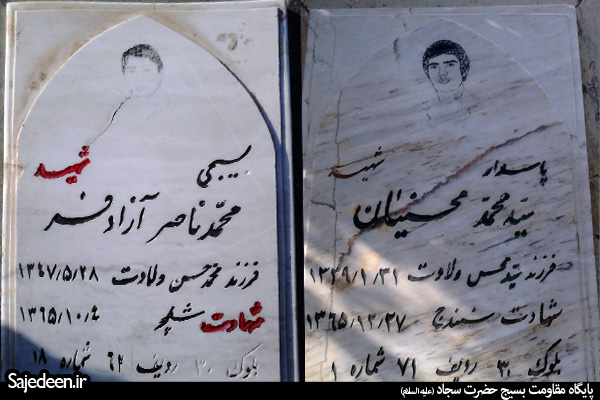 پاسدار شهید
سید محمد محسنیان
فرزند سید محسن ولادت ۱۳۳۹/۱/۳۱
شهادت سنندج ۱۳۶۵/۱۲/۲۷
بلوک ۳۰ ردیف ۷۱ شماره ۱
بسیجی شهید
محمد ناصر آزاد فر
فرزند محمد حسن ولادت ۱۳۴۷/۵/۲۸
شهادت شلمچه ۱۳۶۵/۱۰/۴
بلوک ۳۰ ردیف ۶۲ شماره ۱۸
پایگاه مقاومت بسیج حضرت سجاد (علیه السلام)
Sajedeen.ir